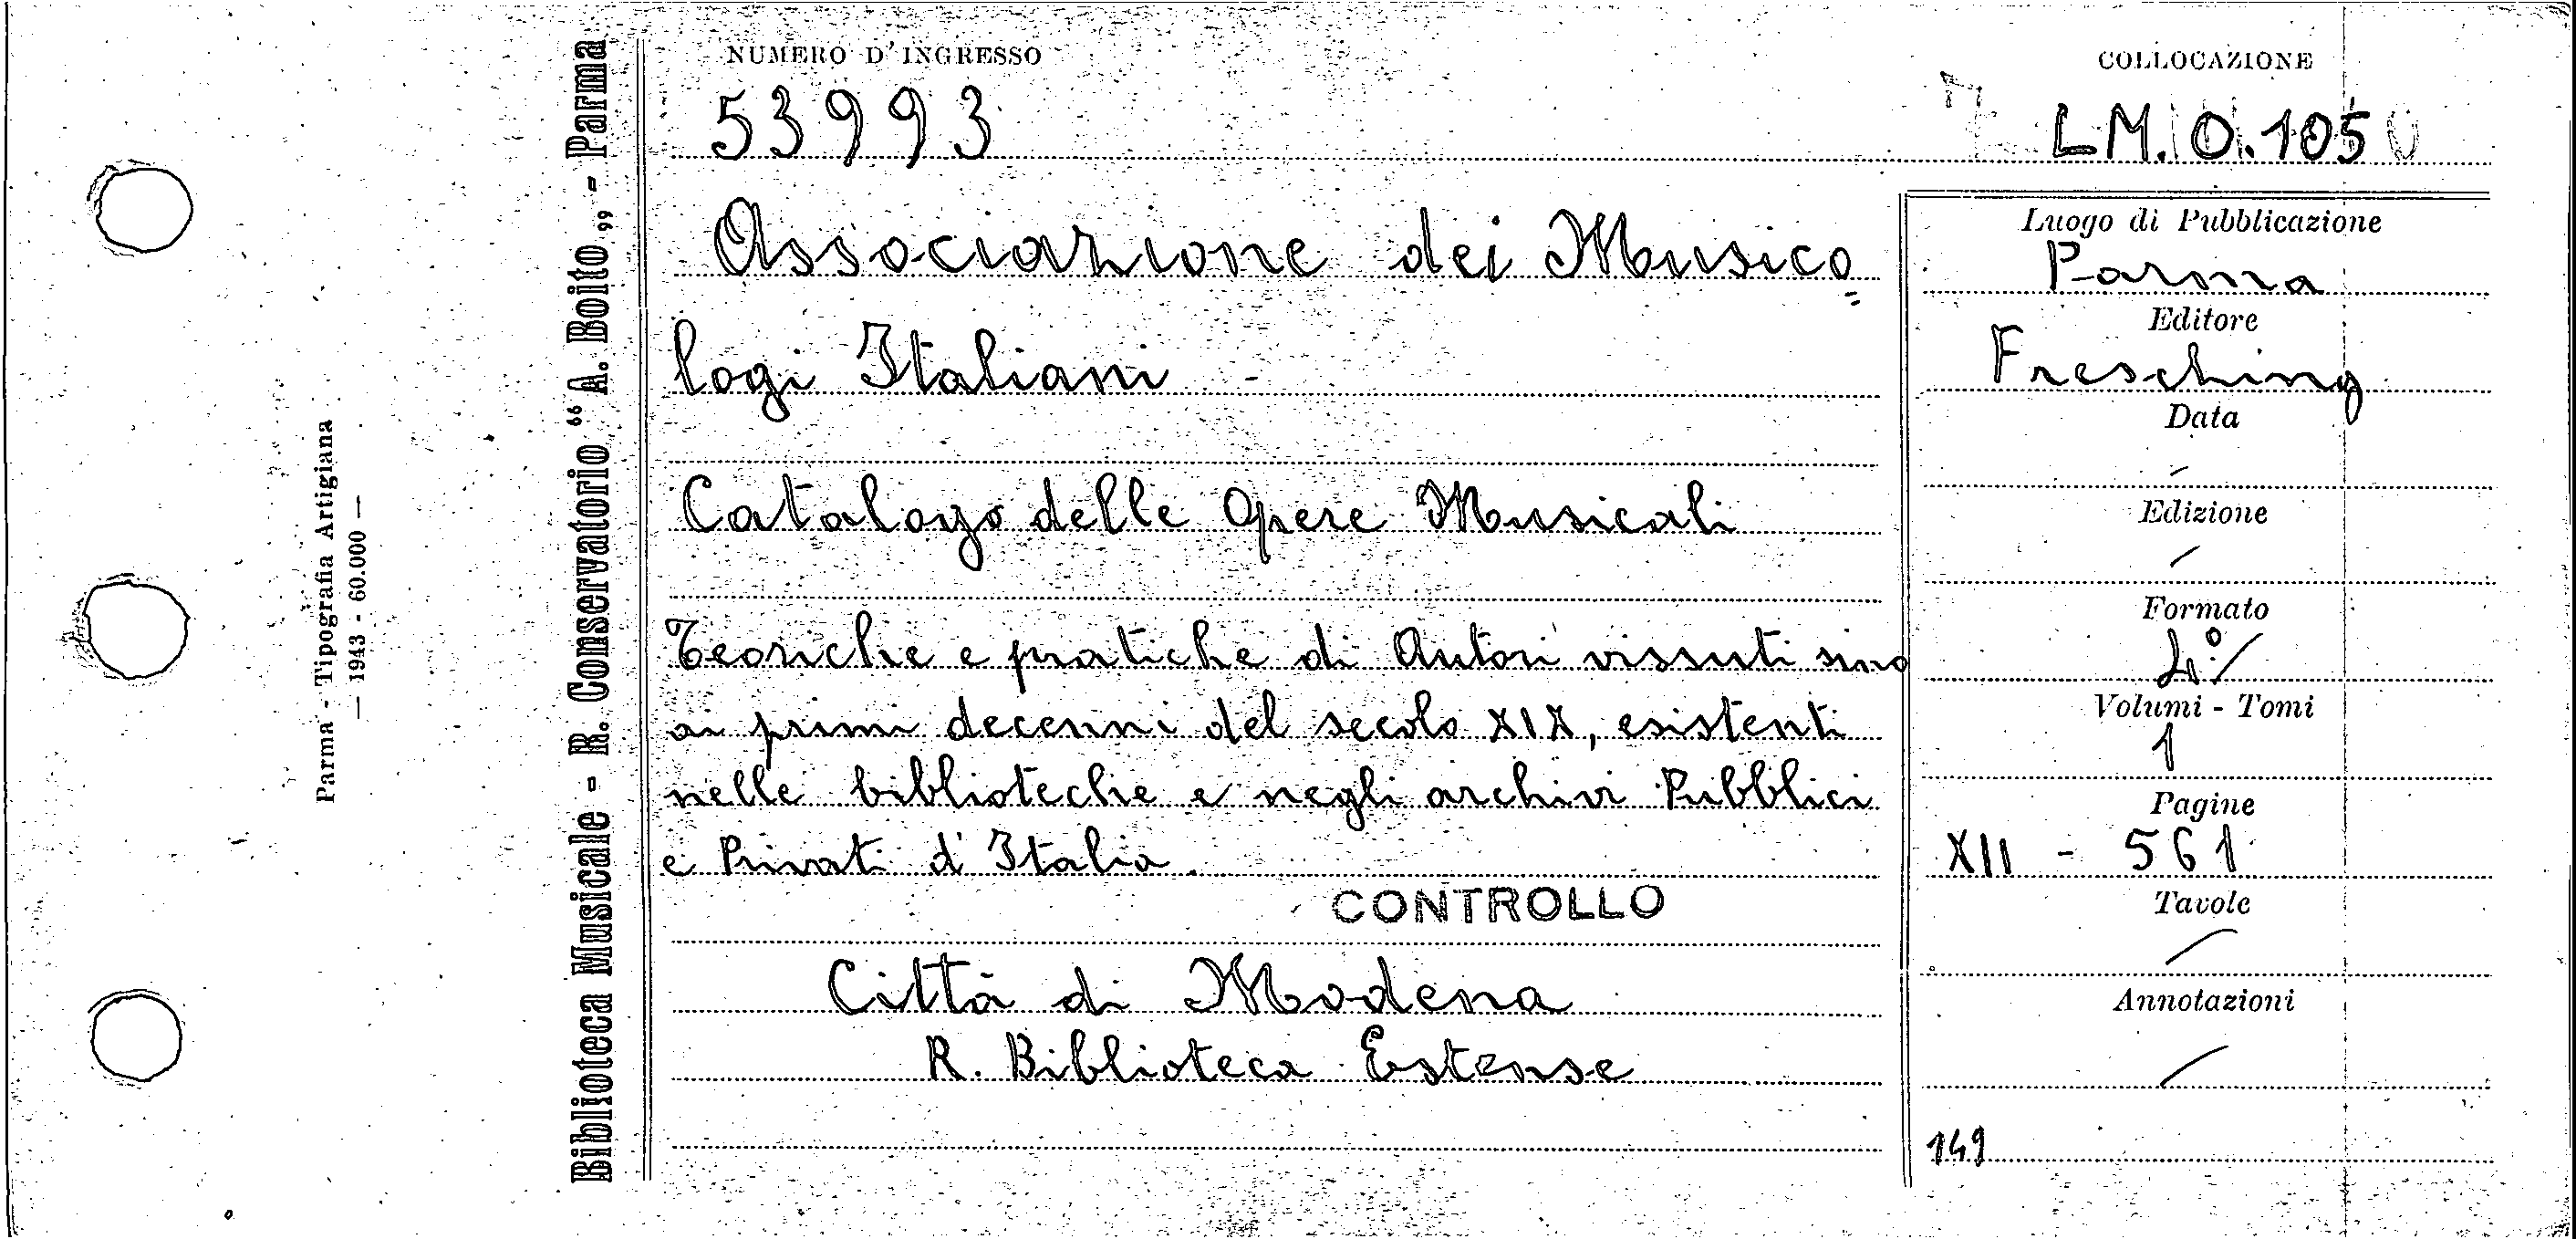 NUMERO D'INGRESSO
53993
COLLOCAZIONE
LM.O.105
Associazione dei Musico=
logi Italiani -
Catalogo delle Opere Musicali
Teoriche e pratiche di Autori vissuti sino
ai primi decenni del secolo XIX, esistenti
nelle biblioteche e negli archivi Pubblici
e Privati d'Italia.
CONTROLLO
Città di Modena
R. Biblioteca Estense
Luogo di Pubblicazione
Parma
Editore
Fresching
Data
-
Edizione
/
Formato
4°/
Volumi - Tomi
1
Pagine
XII - 561
Tavole
/
Annotazioni
/
149
Biblioteca Musicale - R. Conservatorio “A. Boito„ - Parma
Parma - Tipografia Artigiana
— 1943 - 60.000 —